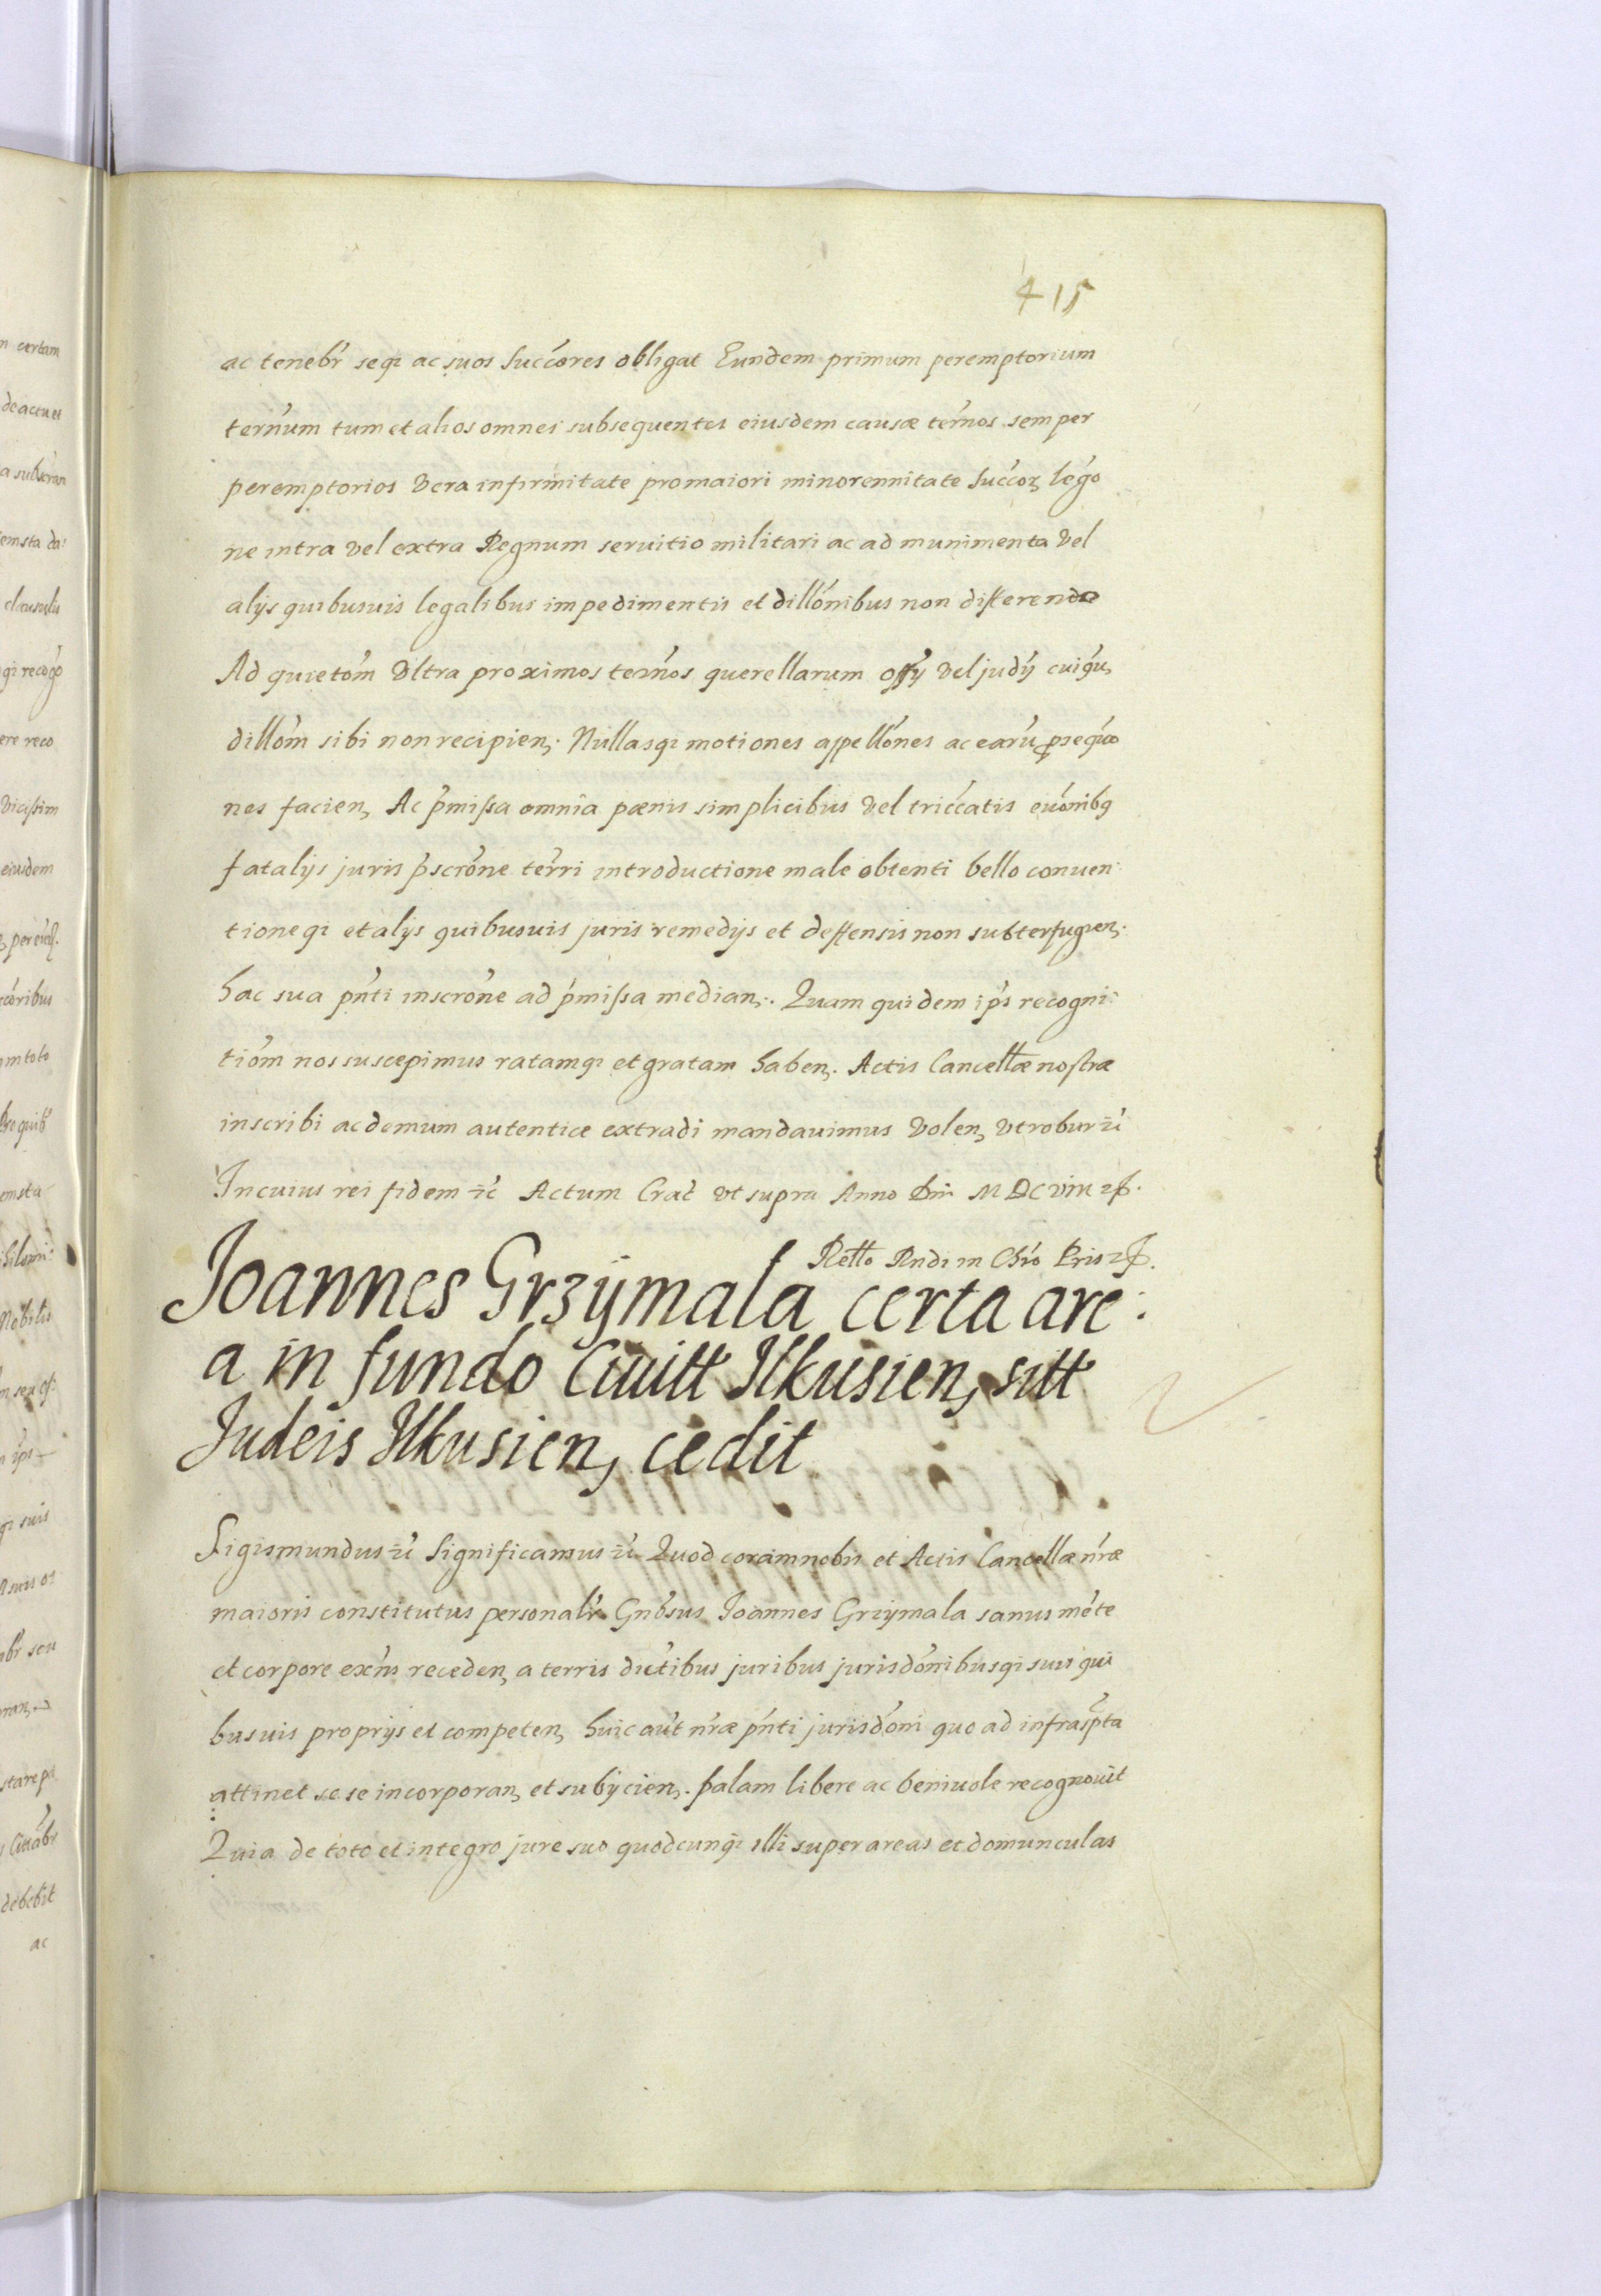 415
ac tenebr̃ seqȝ ac suos Succ̃ores obligat Eundem primum peremptorium
ter̃num tum et alios omnes subsequentes eiusdem causæ ter̃nos semper
peremptorios Vera infirmitate pro maiori minorennitate Succoꝝ leg̃o
ne intra vel extra Regnum seruitio militari ac ad munimenta Vel
alijs quibusuis legalibus impedimentis et dill̃onibus non differendo
Ad quietõm Vltra proximos ter̃nos querellarum offȳ vel judȳ cuiqȝ
dillõm sibi non recipienȝ. Nullasqȝ motiones appell̃ones ac earũ ꝓsequõ
nes facienȝ Ac p̃missa omnia pænis simplicibus Vel tricc̃atis eũonibꝰ
fatalijs juris p̃scr̃one ter̃ri introductione male obtenti bello conuen
tioneqȝ et alijs quibusuis juris remedijs et deffensis non subterfugienȝ.
hac sua p̃nti inscr̃one ad p̃missa medianȝ. Quam quidem ip̃s recogni:
tiõm nos suscepimus ratamqȝ et gratam habenȝ. Actis Cancellæ nostræ
inscribi ac demum autentice extradi mandauimus Volenȝ vt robur ꝛc̃
In cuius rei fidem ꝛc̃ Actum Crac̃ vt supra Anno Dni MDCVIII
Retto Rndi in Chr̃o Pris
Joannes Grzÿmala certa are:
a in fundo Ciuitt Ilkusienȝ sitt
Judeis Ilkusienȝ cedit
Sigismundus ꝛc̃ Significamus ꝛc̃ Quod coram nobis et Actis Cancellæ nr̃æ
maioris constitutus personalr̃ Gnõsus Joannes Grzÿmala sanus mẽte
et corpore ex̃ns recedenȝ a terris dũtibus juribus jurisd̃onibusqȝ suis qui
busuis proprijs et competenȝ huic aũt nr̃æ p̃nti jurisd̃oni quo ad infrasc̃pta
attinet se se incorporanȝ et subÿcienȝ. palam libere ac beniuole recognouit
Quia de toto et integro jure suo quodcunqȝ illi super areas et domunculas